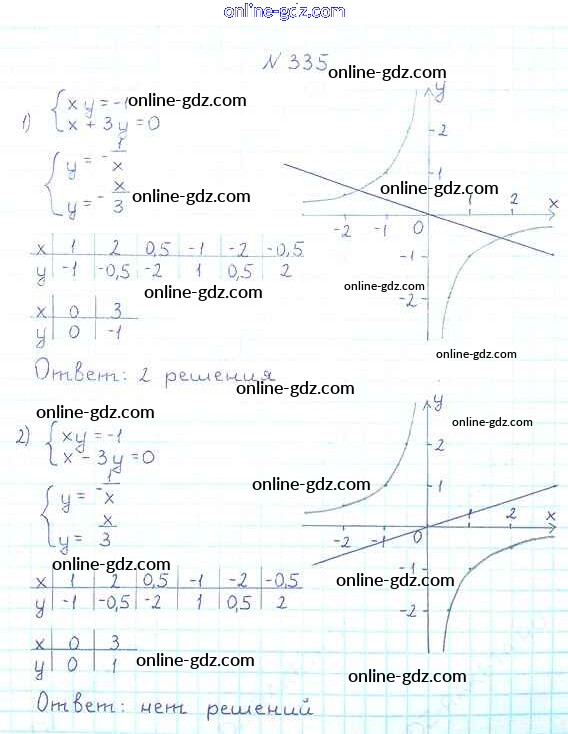 online-gdz.com
N 335
online-gdz.com
1) { xy = -1
online-gdz.com
x + 3y = 0
{ y = -1/x
y = -x/3
online-gdz.com
x | 1 | 2 | 0,5 | -1 | -2 | -0,5
y | -1 | -0,5 | -2 | 1 | 0,5 | 2
online-gdz.com
x | 0 | 3
y | 0 | -1
Ответ: 2 решения
online-gdz.com
y
2
1
online-gdz.com
x
-2 -1 0 1 2
-1
online-gdz.com
-2
online-gdz.com
online-gdz.com
2) { xy = -1
x - 3y = 0
{ y = -1/x
y = x/3
online-gdz.com
x | 1 | 2 | 0,5 | -1 | -2 | -0,5
y | -1 | -0,5 | -2 | 1 | 0,5 | 2
x | 0 | 3
y | 0 | 1
online-gdz.com
Ответ: нет решений
y
online-gdz.com
2
1
online-gdz.com
x
-2 -1 0 1 2
-1
online-gdz.com
-2
online-gdz.com